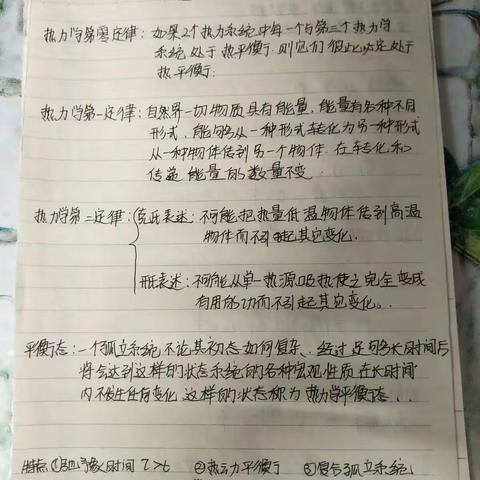 热力学第零定律：如果2个热力系统中每一个与第三个热力学
系统处于热平衡，则它们彼此必定处于
热平衡．
热力学第一定律：自然界一切物质具有能量，能量有各种不同
形式，能够从一种形式转化为另一种形式
从一种物体传到另一个物体．在转化和
传递 能量的数量不变．
热力学第二定律：克氏表述：不可能把热量低温物体传到高温
物体而不引起其它变化．
开氏表述：不可能从单一热源吸热使之完全变成
有用的功而不引起其它变化．
平衡态：一个孤立系统 不论其初态如何复杂，经过足够长时间后
将会达到这样的状态系统的各种宏观性质在长时间
内不发生任何变化 这样的状态称为热力学平衡态．
特点 ① 时间 τ>t ②热动平衡 ③复合孤立系统